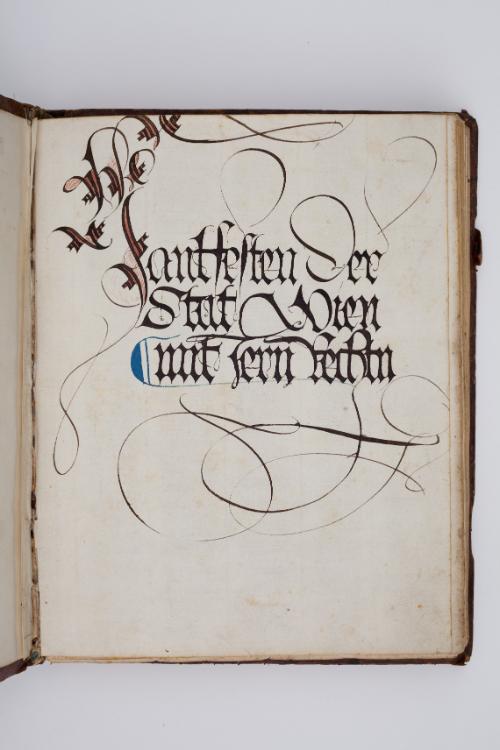 Hantfesten der
Stat Wien
mit jern Rechtn